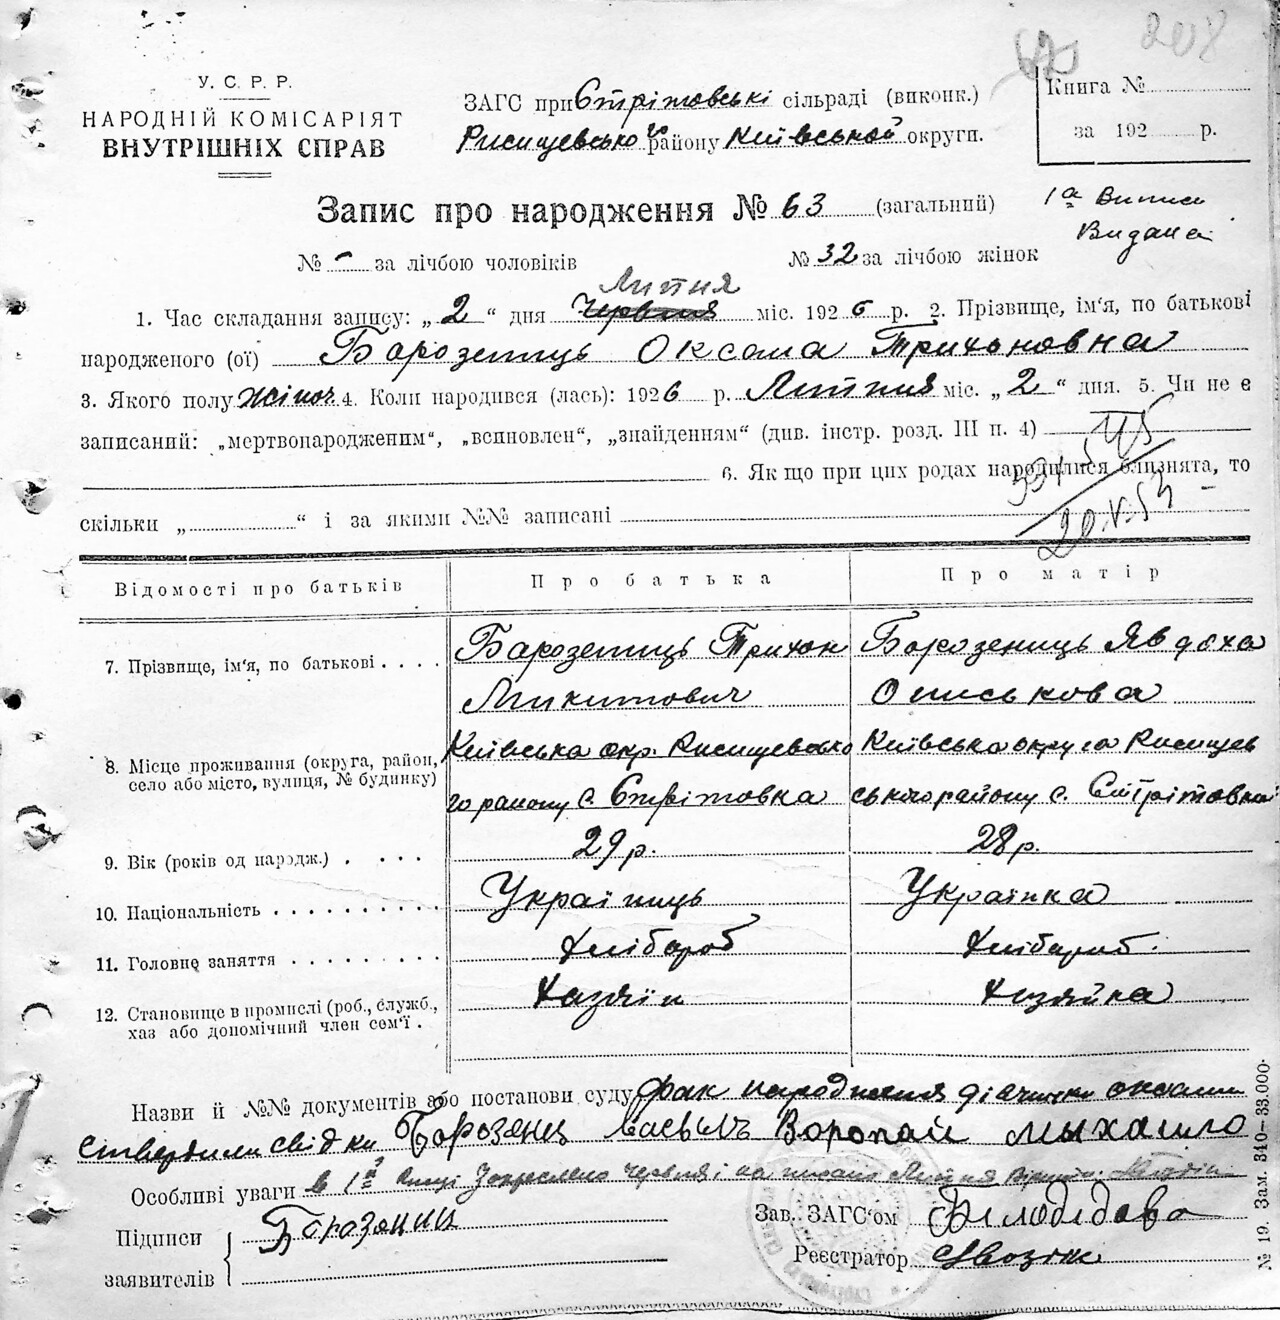 208
У. С. Р. Р.
НАРОДНІЙ КОМІСАРІЯТ
ВНУТРІШНІХ СПРАВ
ЗАГС при Стрітовські сільраді (виконк.)
Рисищевсько го району Київськой округи.
Книга №
за 192 р.
Запис про народження № 63 (загальний)
1а Випись
Видана
№ - за лічбою чоловіків № 32 за лічбою жінок
Липня
1. Час складання запису: „2“ дня Червня міс. 1926 р. 2. Прізвище, ім'я, по батькові
народженого (ої) Барозениць Оксана Трихоновна
3. Якого полу жіноч 4. Коли народився (лась): 1926 р. Липня міс. „2“ дня. 5. Чи не є
записаний: „мертвонародженим“, „всиновлен“, „знайденням“ (див. інстр. розд. III п. 4)
6. Як що при цих родах народилися близнята, то
скільки „ “ і за якими №№ записані
20.V.53
Відомості про батьків Про батька Про матір
7. Прізвище, ім'я, по батькові . . . . Барозениць Трихон Борозениць Явдоха
Микитович Описькова
8. Місце проживання (округа, район, село або місто, вулиця, № будинку) Київська окр. Рисищевсько Київська округа Рисищев
го району с. Стрітовка ського району с. Стрітовка
9. Вік (років од народж.) . . . . 29 р. 28 р.
10. Національність . . . . . . . . . . Україниць Українка
11. Головне заняття . . . . . . . . . Хлібароб Хлібароб.
12. Становище в промислі (роб., служб., хаз або допомічний член сем'ї . Хазяїн Хозяйка
Назви й №№ документів або постанови суду Фак народження дівчинки Оксани
ствердили свідки Борозянец Васыль Воропай Мыхайло
Особливі уваги в 1й Закреслено червня і написано Липня
Підписи заявителів Боразянин
Зав. ЗАГС'ом Білодідова
Реєстратор
№ 19. Зам. 340—33.000